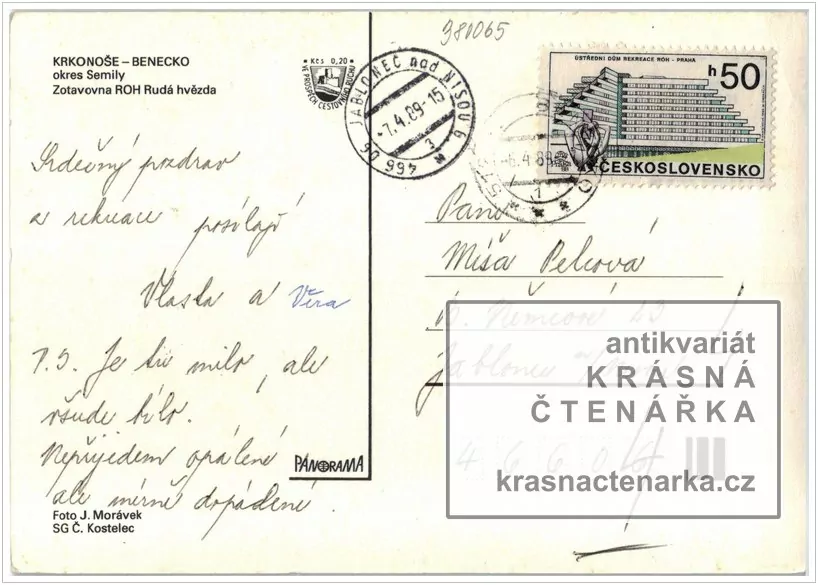 981065
KRKONOŠE – BENECKO
okres Semily
Zotavovna ROH Rudá hvězda
Kčs 0,20
VE PROSPĚCH CESTOVNÍHO RUCHU
466 06 JABLONEC nad NISOU 6
-7.4.89-15
3
-6.4.89
ÚSTŘEDNÍ DŮM REKREACE ROH - PRAHA
h50
ČESKOSLOVENSKO
Srdečný pozdrav
z rekreace posílají
Vlasta a Věra
P.S. Je tu milo, ale
všude bílo.
Nepřijedem opálené
ale mírně dopádené.
PANORAMA
Foto J. Morávek
SG Č. Kostelec
Paní
Míša Pelcová
B. Němcové 23
Jablonec n/Nisou
466 04
antikvariát
KRÁSNÁ
ČTENÁŘKA
krasnactenarka.cz